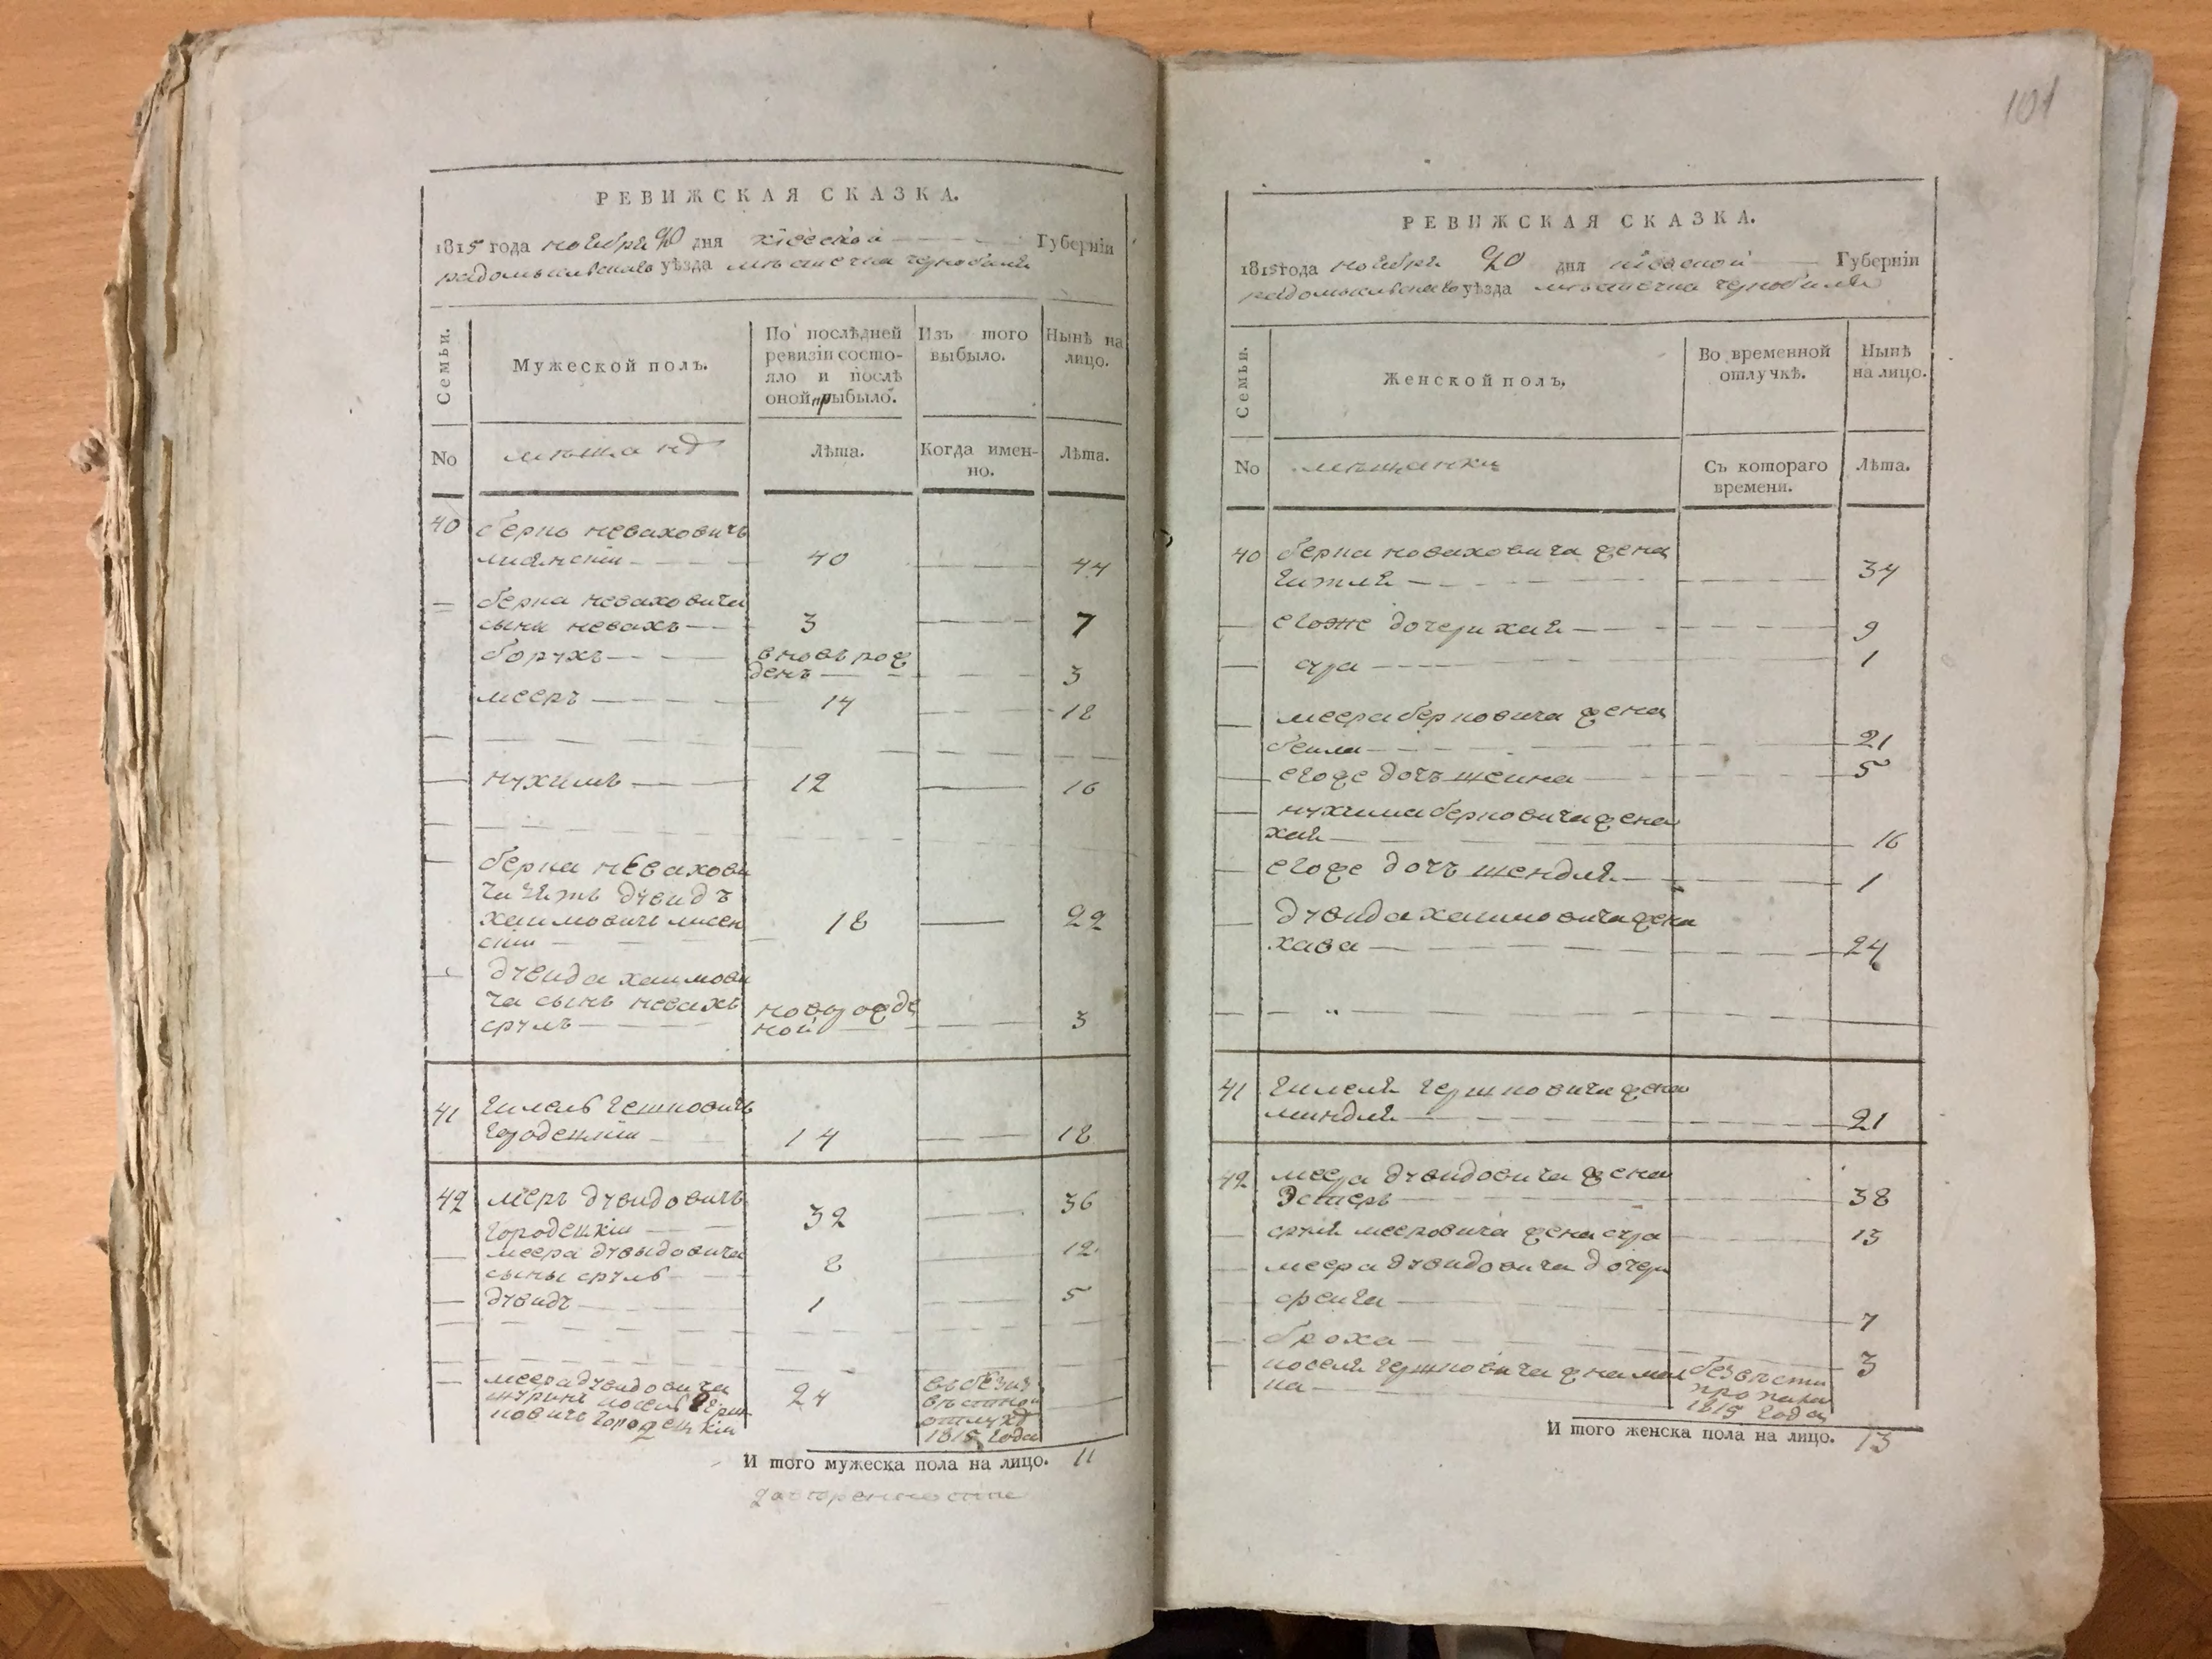 РЕВИЖСКАЯ СКАЗКА.
1815 года ноября 20 дня кіевской Губерніи
радомысльскаго уѣзда мѣстечка чернобыля
Семьи.
Мужеской полъ.
По послѣдней ревизіи состо-
яло и послѣ
оной прыбыло.
Изъ того
выбыло.
Нынѣ на
лицо.
No
Лѣта.
Когда имен-
но.
Лѣта.
40 берко неваховичъ
40 44
= берка неваховича
сыны невахъ 3 7
борухъ вновь рож
денъ 3
мееръ 14 18
нухимъ 12 16
берка невахови
ча зять дувидъ
хаимовичъ 18 22
дувида хаимови
ча сынъ невахъ
сруль 3
41 гилель гешковичъ
14 18
42 меръ дувидовичъ
городецкіи 32 36
меера дувыдовича
сыны сруль 8 12
дувидъ 1 5
меера дувидовича
шуринъ иосель герш
ковичъ городецкіи 24
въ безиз
вѣстной
отлучкѣ
1815 года
И того мужеска пола на лицо. 11
101
РЕВИЖСКАЯ СКАЗКА.
1815 года ноября 20 дня кіевской Губерніи
радомысльскаго уѣзда мѣстечка чернобыля
Семьи.
Женской полъ.
Во временной
отлучкѣ.
Нынѣ
на лицо.
No
мѣщанки
Съ котораго
времени.
Лѣта.
40 берка неваховича жена
гитля 34
егоже дочери хая 9
сура 1
меера берковича жена
беила 21
егоже дочь шеина 5
нухима берковича жена
хая 16
егоже дочъ шендля 1
дувида хаимовича жена
хава 24
41 гилеля гершковича жена
миндля 21
42 меера дувидовича жена
Эстеръ 38
сруля мееровича жена сура 13
меера дувидовича дочери
фреига 7
броха 3
иоселя гершковича
безвѣсти
пропала
1815 года
И того женска пола на лицо. 13